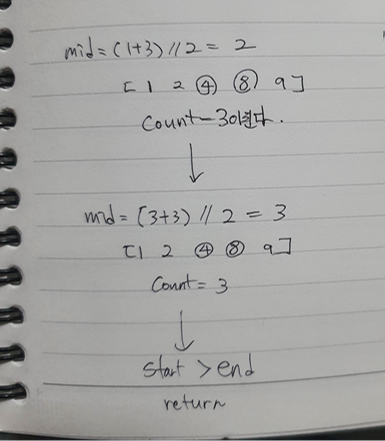 mid = (1+3) // 2 = 2
[ 1 2 ④ ⑧ 9 ]
Count - 30년다.
↓
mid = [3+3) // 2 = 3
[1 2 ④ ⑧ 9]
Count = 3
↓
start > end
return